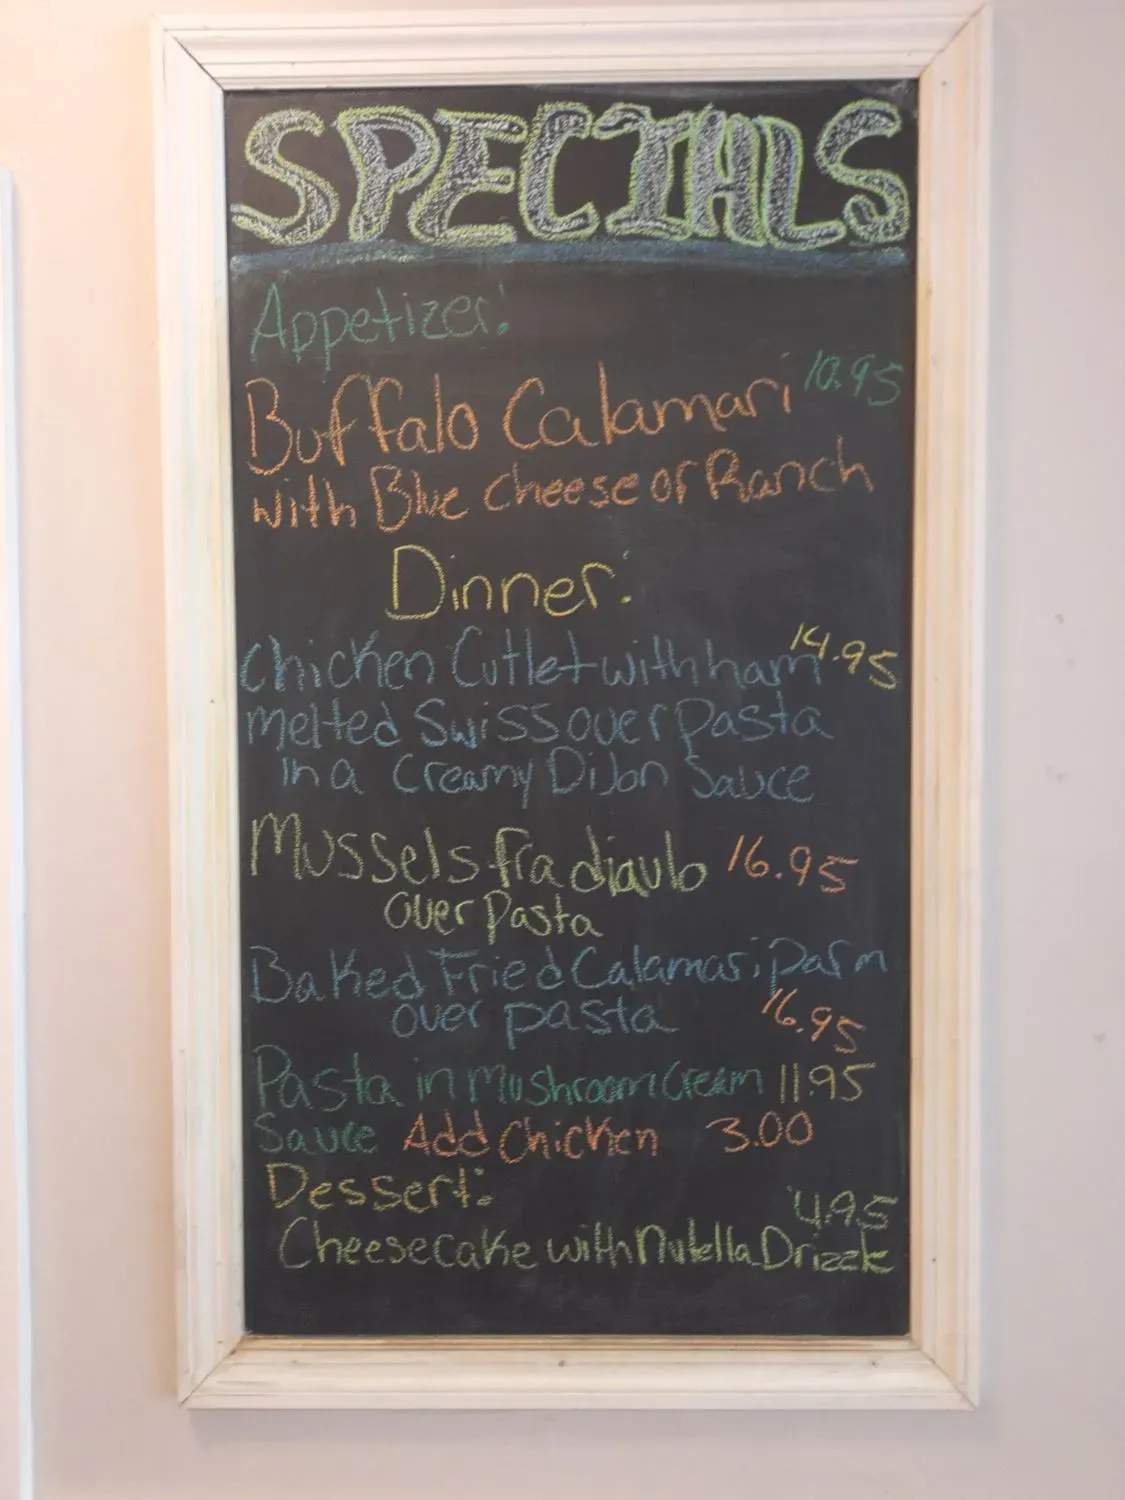 SPECIALS
Appetizer:
Buffalo Calamari 10.95
with Blue cheese or Ranch
Dinner:
Chicken Cutlet with ham 14.95
melted Swiss over pasta
in a creamy Dijon Sauce
Mussels fra diavlo 16.95
over Pasta
Baked Fried Calamari parm
over pasta 16.95
Pasta in mushroom cream 11.95
Sauce Add Chicken 3.00
Dessert:
4.95
Cheesecake with Nutella Drizzle